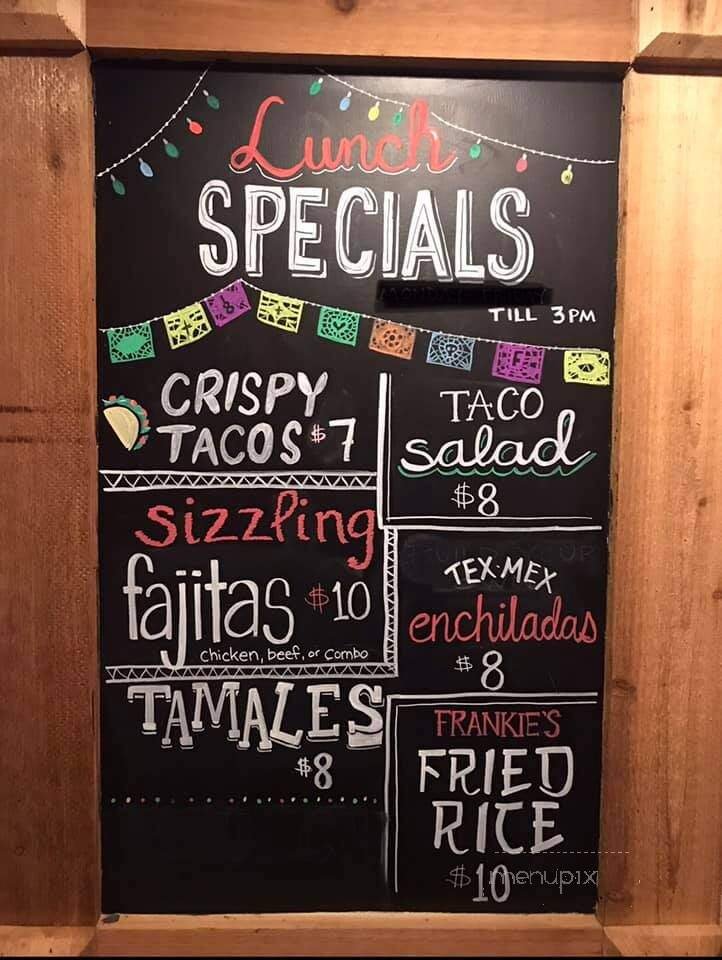 Lunch
SPECIALS
TILL 3PM
CRISPY
TACOS $7
TACO
salad
$8
sizzling
fajitas $10
chicken, beef, or combo
TEX-MEX
enchiladas
$8
TAMALES
$8
FRANKIE'S
FRIED
RICE
$10
menupix